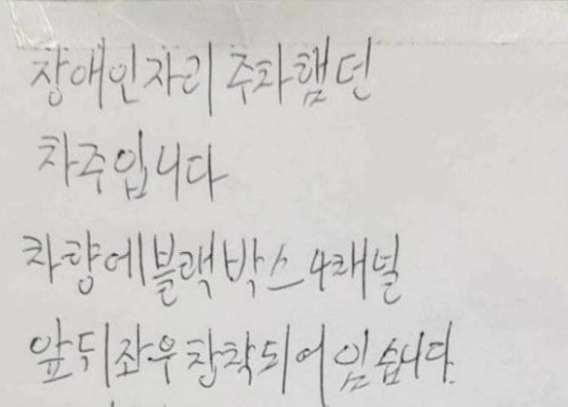 장애인자리 주차햄던
차주입니다
차량에블랙박스4채널
앞뒤좌우장착되어있습니다.